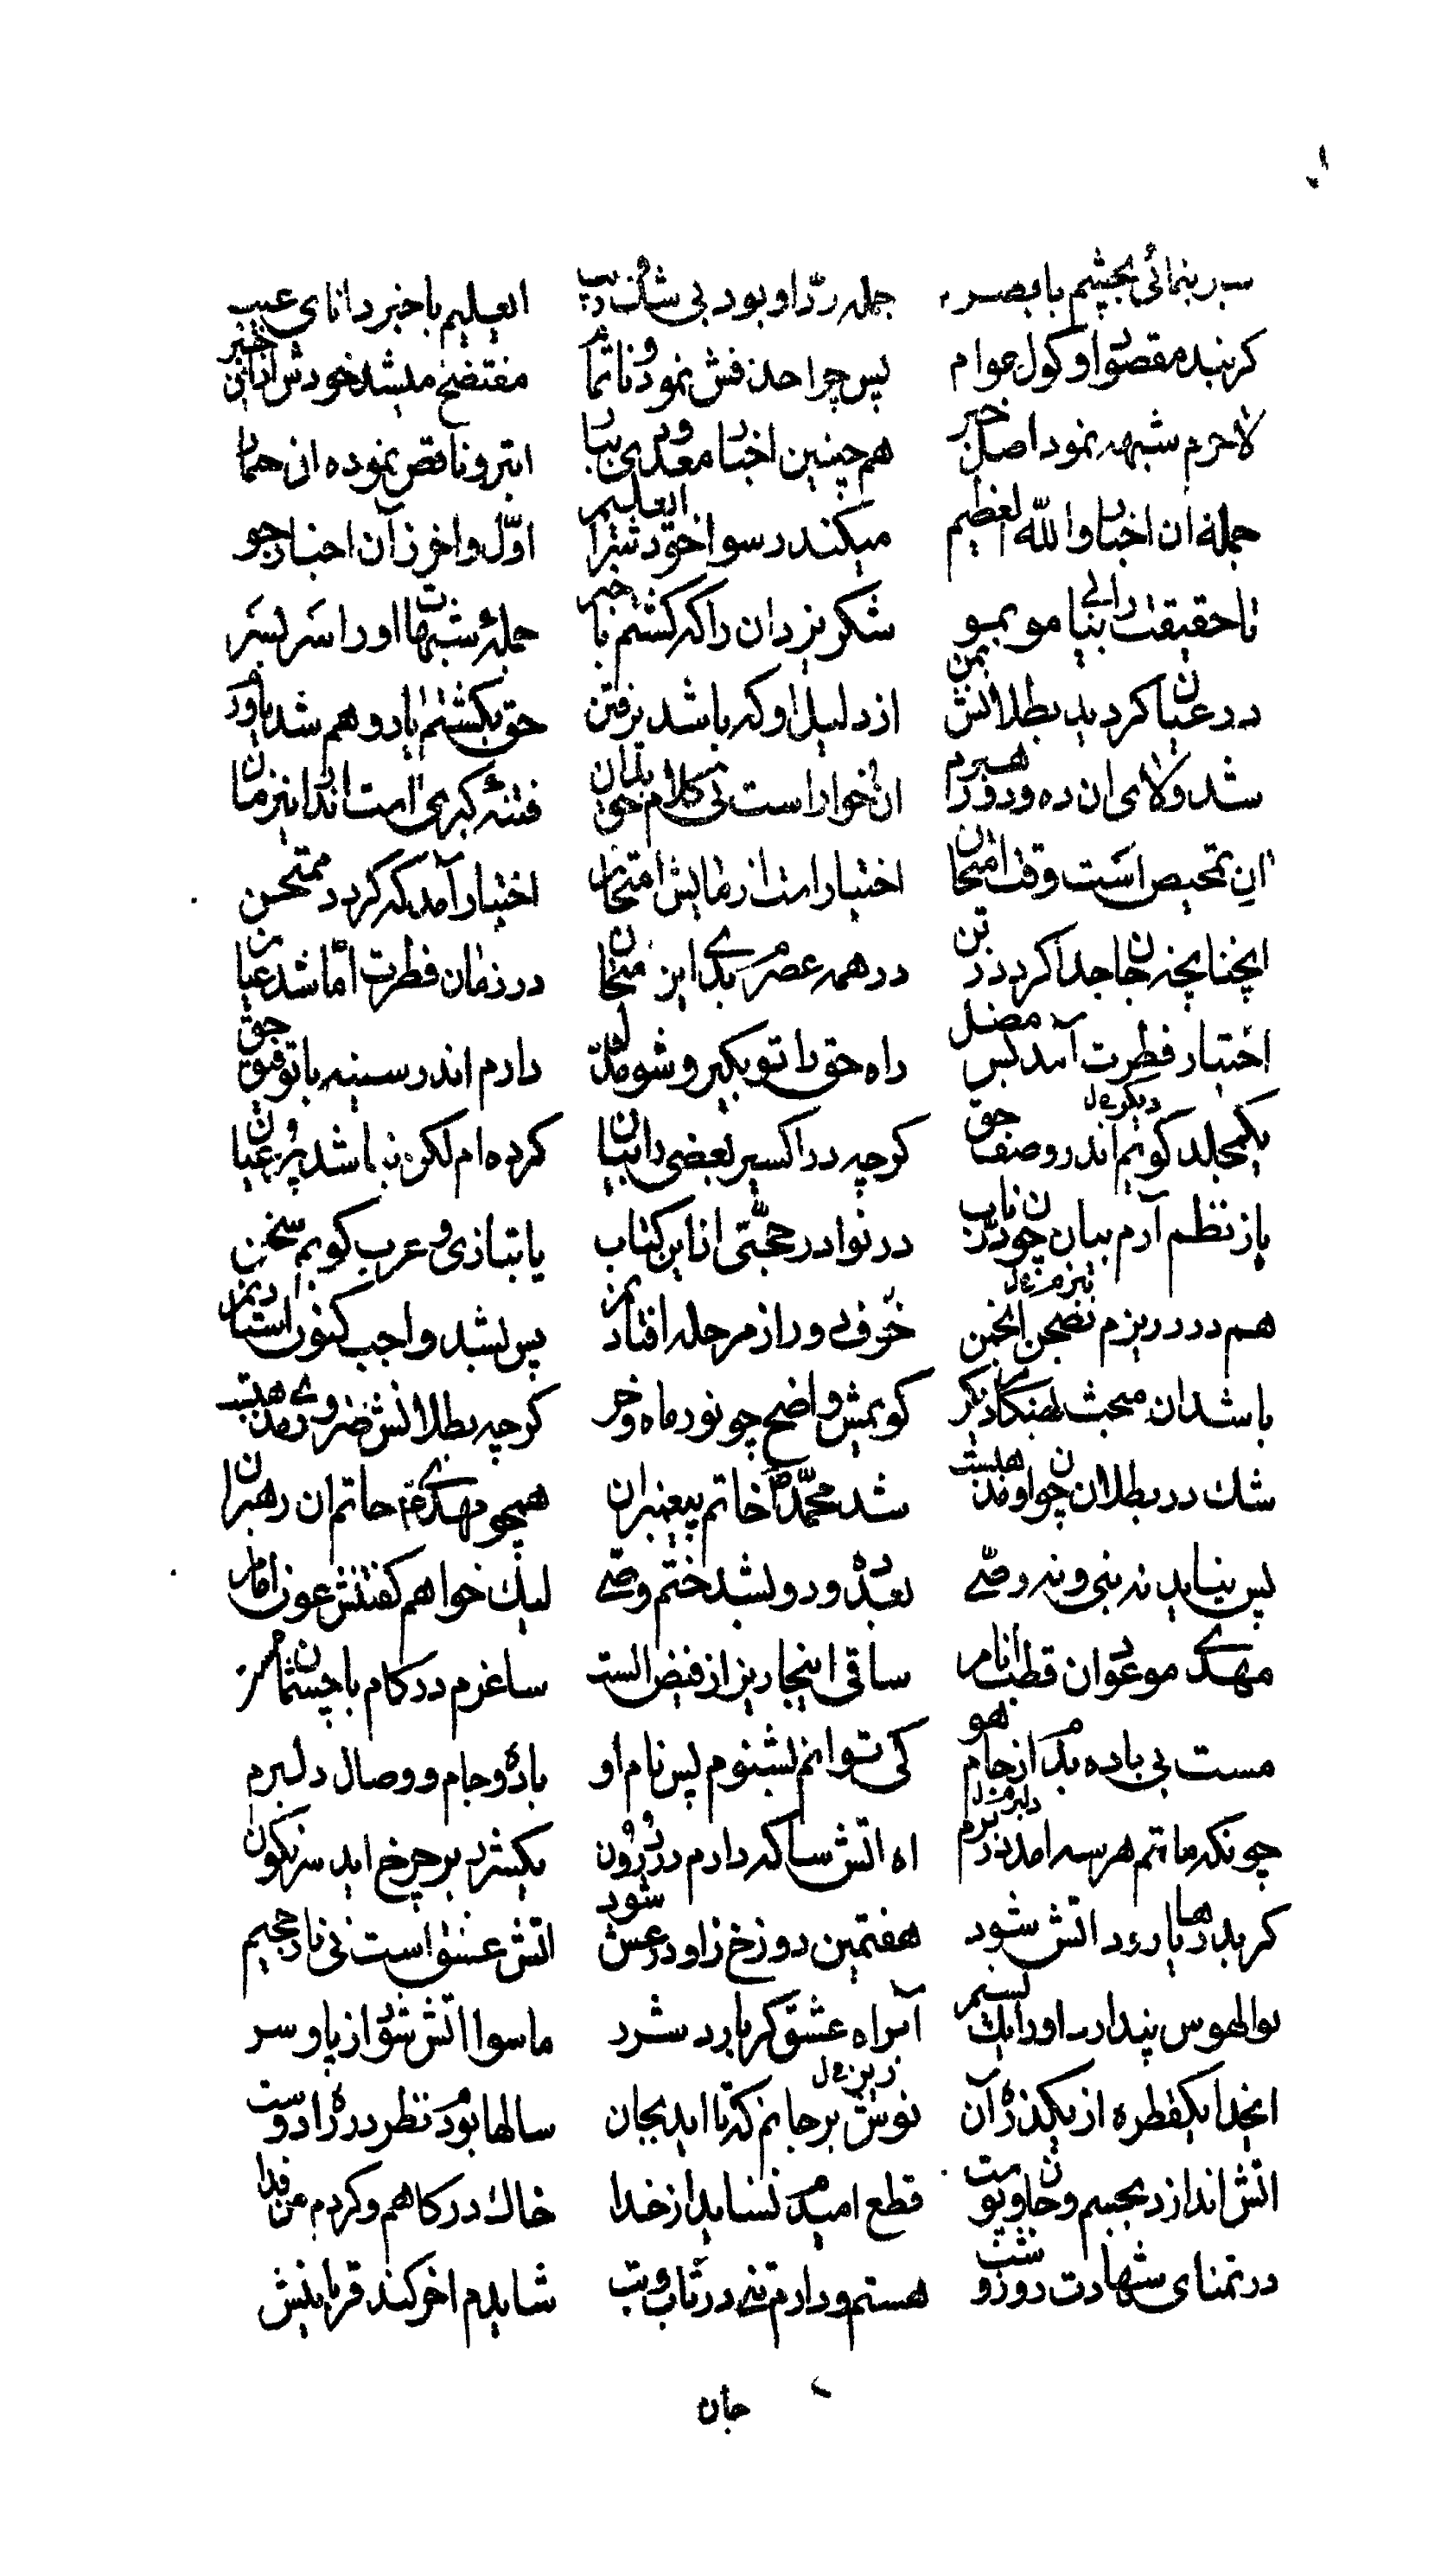 سر بنمائی بچشم با بصر جمله ردّ او بود بی شک و ریب ایعلیم با خبر دانای عیب
کر نبد مقصود او کول عوام پس چرا حذفش نمود و ناتمام مفتضح میشد خودش از آن خبر
لاجرم شبهه نمود اصل خبر هم چنین اخبار معدودی بیان ابتر و ناقص نموده ان حمار
جمله ان اخبار والله العظیم میکند رسوا خود شررا ایعلیم اوّل و اخر زآن اخبار جو
تا حقیقت را بیابی مو بمو شکر یزدان را که کشتم با خبر جملهٔ شبهات او را سر بسر
در عیان کردید بطلانش بمن از دلیل او که باشد برفتن حق بکشتم یار و هم شد یاورم
شد ولای ان ده و دو رهبرم ان خوار است نی کلام حق بدان فتنهٔ کبری است اندر این زمان
ان تمحیص است وقت امتحان اختبار است ازمایش امتحان اختبار آمد که کردد ممتحن
انچنانچه جان جدا کردد ز تن در همه عصری بد این امتحان در زمان فطرت امّا شد عیان
اختبار فطرت آمد بس مضل راه حق را تو بکیر و شو مدلّ دارم اندر سینه با توفیق حق
یکمجلد کویم اندر وصف حق کرچه در اکسیر بعضی را بیان کرده ام لکن نباشد پر عیان
باز نظم آرم بیان چون درّ ناب در نوادر حجّتی از این کتاب یا بتازی و عرب کویم سخن
هم درر ریزم نصحن انجمن خرفی و راز مرحله افتاد پس بشد واجب کنون
باشد ان مبحث بهنکام دیکر کویمش واضح چو نور ماه و خر کرچه بطلانش ضروری
شک در بطلان چو او شد محمّد خاتم پیغمبران همچو مهدی خاتم ان رهبران
پس نیاید نه نبی و نه وصّی بعد ده و دو بشد ختم وصّی لیک خواهم کفتنش عون امام
مهدی موعود ان قطب انام ساقی اینجا ریز از فیض الست ساغرم در کام با چشمان مست
مست بی باده بدم از جام هو کی توانم بشنوم پس نام او باده و جام و وصال دلبرم
چونکه ماتم هر سه امد در برم اه اتش سا که دارم در درون یکشرر بر چرخ اید سرنکون
کر بدریاها رود اتش شود هفتمین دوزخ ز او در غش شود اتش عشق است نی نار جحیم
بوالهوس پندارد او را یک نسیم آب راه عشق کر بارد شرر ماسوا اتش شود از پا و سر
ایخدا یکقطره از یکذره آن نوش بر جانم که تا اید بجان سالها بودم نظر در راه دوست
اتش اندازد بجسم و جان و پوست قطع امیدم نشاید از خدا خاک درکاهم و کردم من فدا
در تمنای شهادت روز و شب هستم و دارم تنی در تاب و تب شایدم اخر کند قربانیش
جان